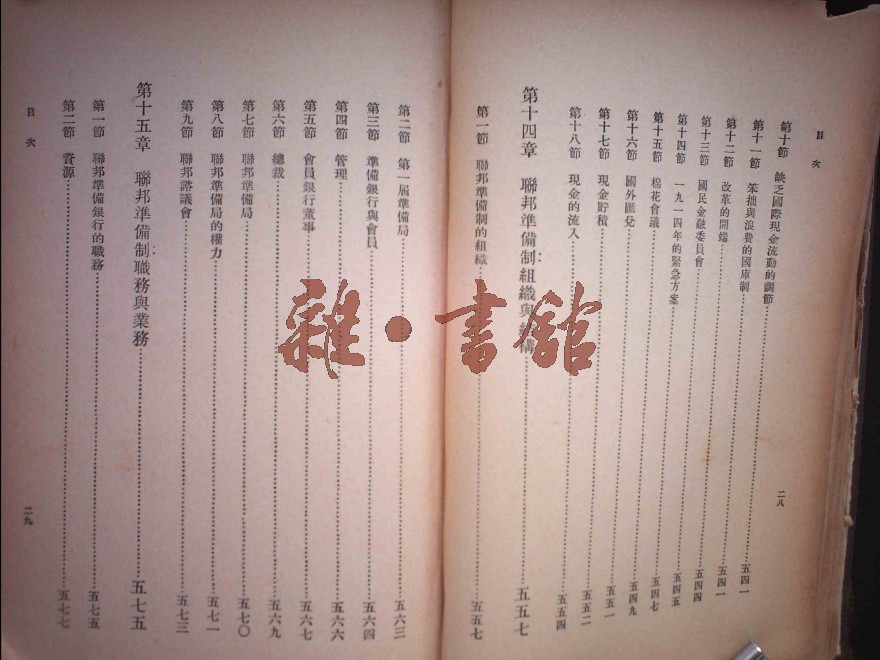 目次
二八
第十節 缺乏國際現金流動的調節……五四一
第十一節 笨拙與浪費的國庫制……五四一
第十二節 改革的開端……五四一
第十三節 國民金融委員會……五四四
第十四節 一九一四年的緊急方案……五四五
第十五節 棉花會議……五四七
第十六節 國外匯兌……五四九
第十七節 現金貯積……五五一
第十八節 現金的流入……五五四
第十四章 聯邦準備制組織與 構……五五七
第一節 聯邦準備制的組織……五五七
第二節 第一屆準備局……五六三
第三節 準備銀行與會員……五六四
第四節 管理……五六六
第五節 會員銀行董事……五六七
第六節 總裁……五六九
第七節 聯邦準備局……五七〇
第八節 聯邦準備局的權力……五七一
第九節 聯邦諮議會……五七三
第十五章 聯邦準備制職務與業務……五七五
第一節 聯邦準備銀行的職務……五七五
第二節 資源……五七七
目次
二九
雜·書館